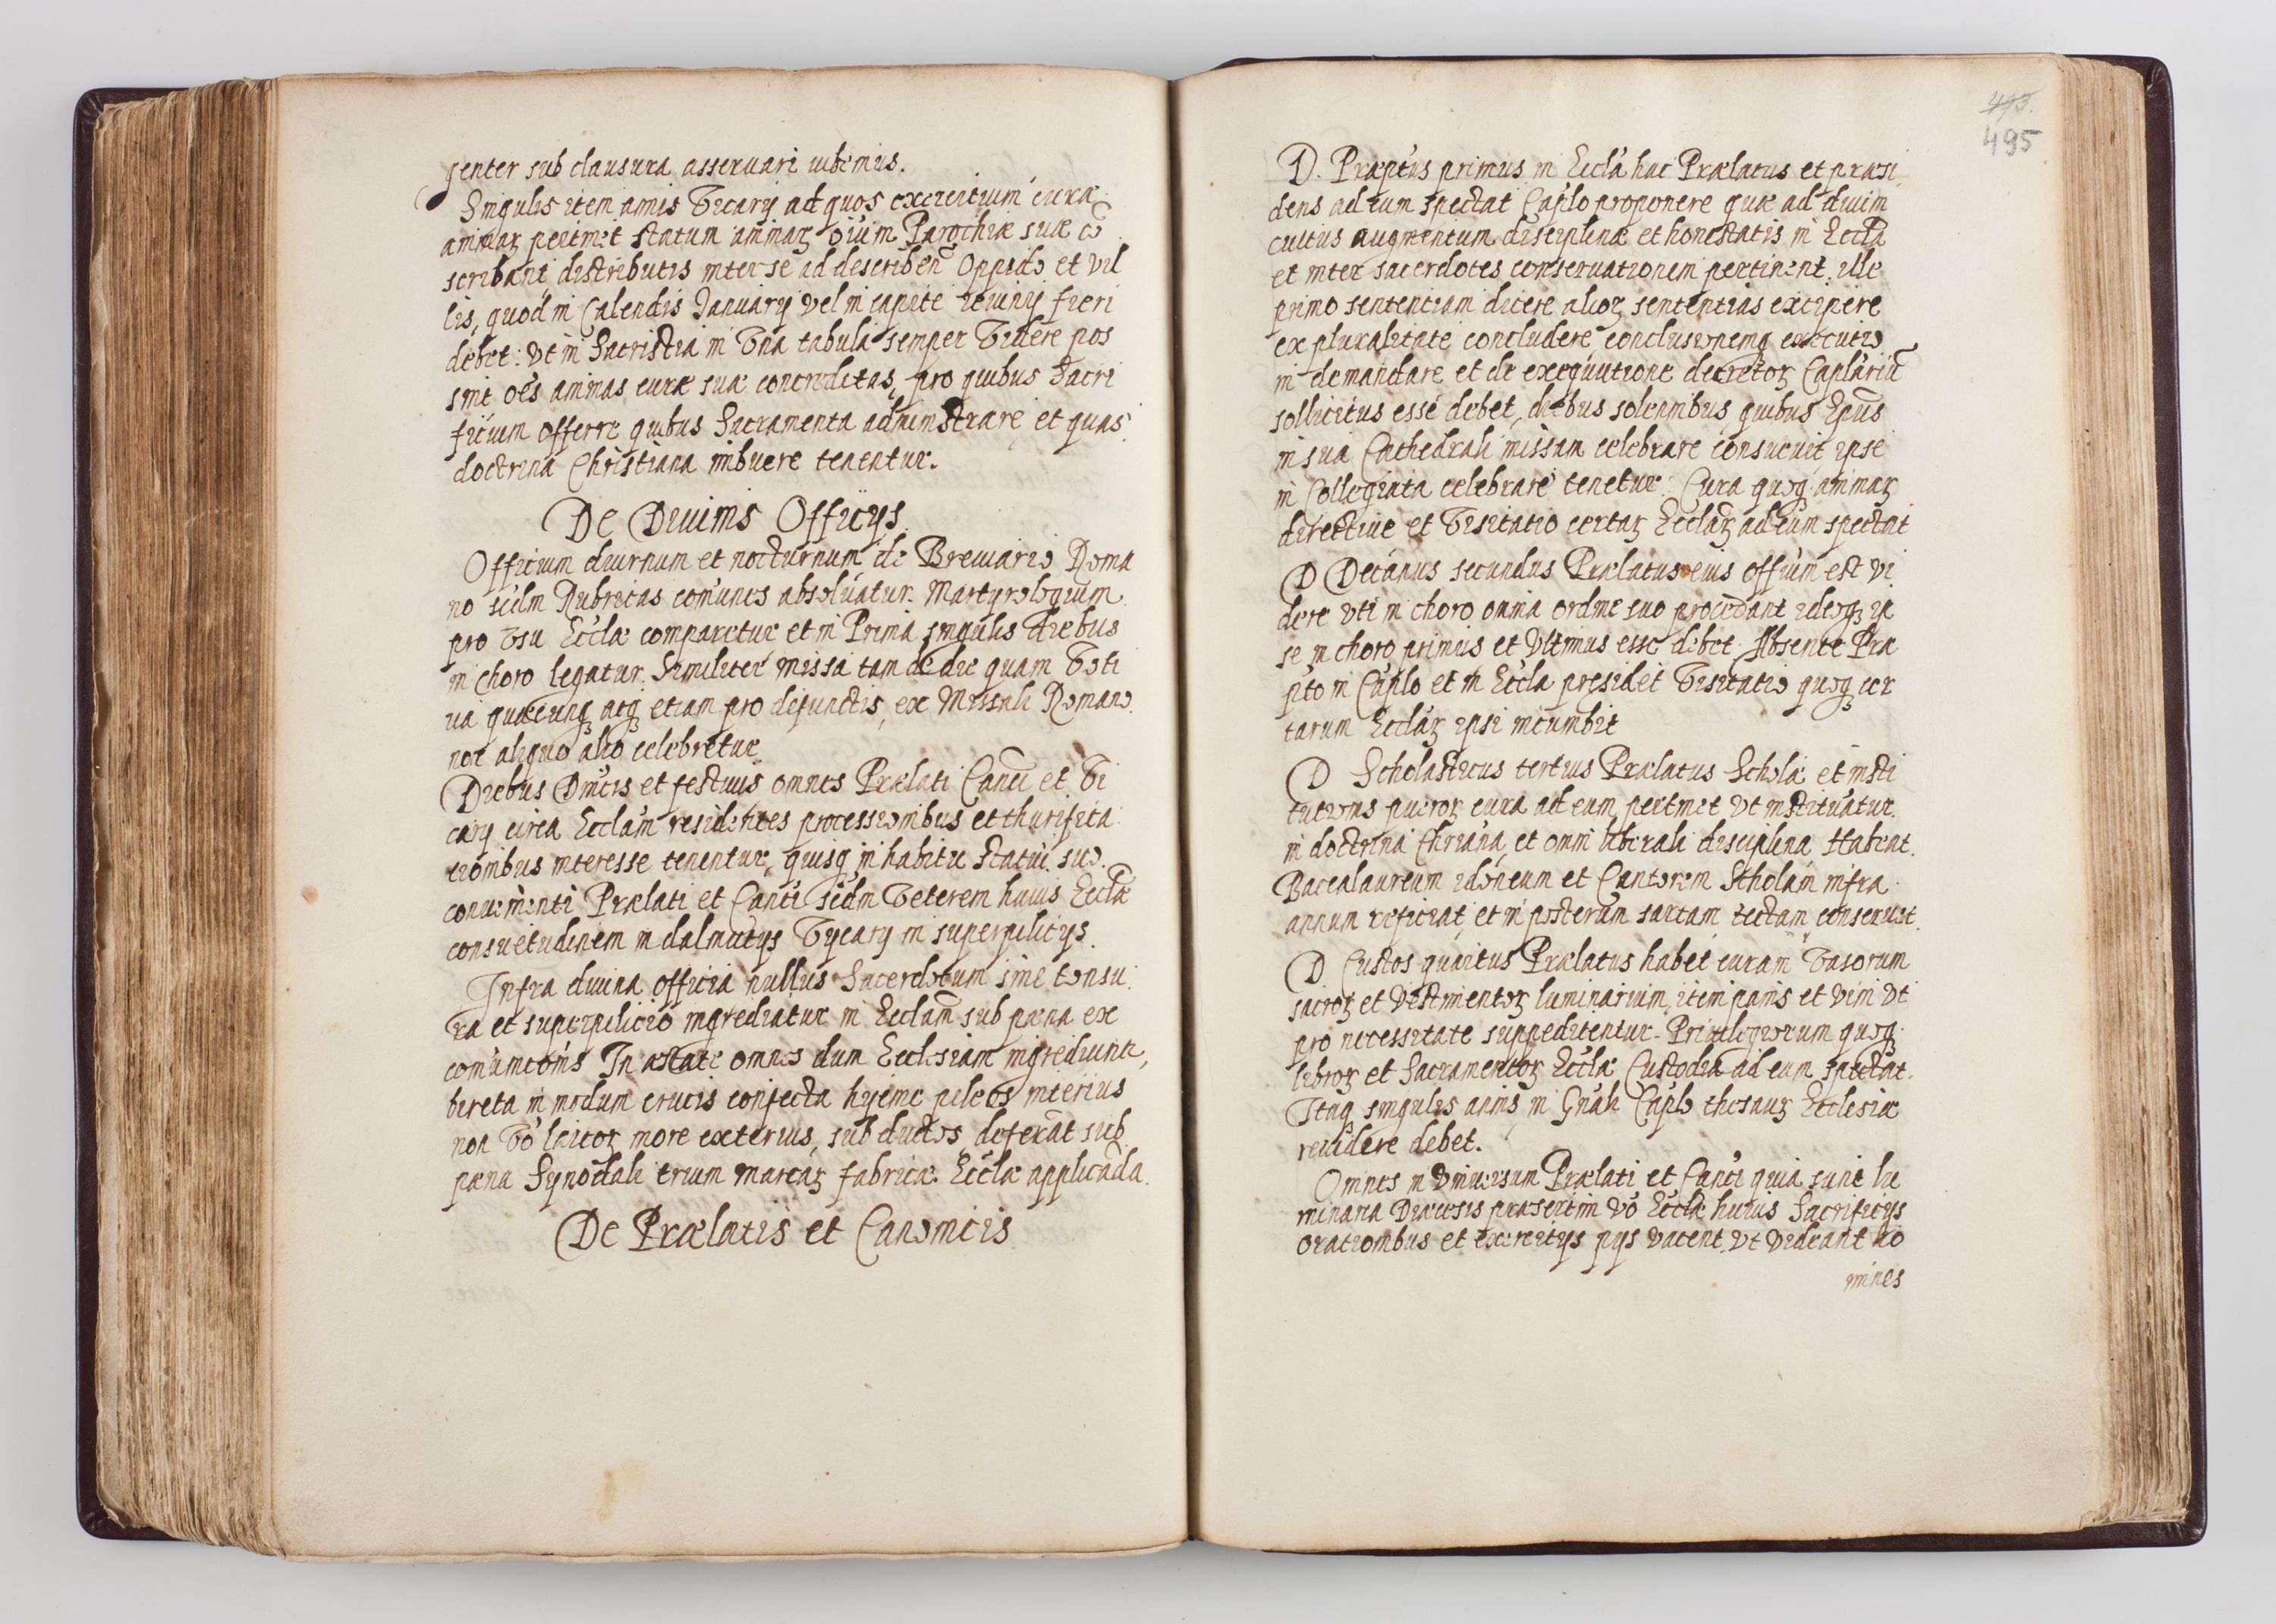 genter sub clausura asseruari iubemus.
Singulis item annis Vicarij ad quos exercitium curæ
animaꝝ pertinet statum animaꝝ oiũm Parochiæ suæ cõ
scribant, distributis inter se ad describen̄ Oppido et vil
lis, quod in Calendis Januarij vel in capite ieiunij fieri
debet: vt in Sacristia in vna tabula semper videre pos
sint oe͂s animas curæ suæ concreditas, pro quibus Sacri
ficium offerre quibus Sacramenta administrare et quas
doctrina Christiana imbuere tenentur.
De Diuinis Officijs
Officium diurnum et nocturnum de Breuiario Roma
no scd̃m Rubricas com̃unes absoluatur. Martyrologium
pro vsu Eccl̃æ comparetur et in Prima singulis diebus
in choro legatur. Similiter missa tam de die quam voti
ua quæcunq atq etiam pro defunctis, ex Missali Romano
non aliquo alio celebretur.
Diebus Dñicis et festiuis omnes Prælati Canci et Vi
carij circa Eccl̃am residentes processionibus et thurifica
tionibus interesse tenentur, quisq in habitu statui suo
conuenienti Prælati et Canci scd̃m veterem huius Eccl̃æ
consuetudinem in dalmutijs Vycarij in superpilicijs.
Infra diuina officia nullus Sacerdotum sine tonsu
ra et superpilicio ingrediatur in Eccl̃am sub pæna ex
com̃unicõis In æstate omnes dum Ecclesiam ingrediunt̃,
bireta in modum crucis conjecta hyeme pileos interius
non vo͂ laicoꝝ more exterius, sub ductos deferãt sub
pæna Synodali trium marcaꝝ fabricæ Eccl̃æ applicãda.
De Prælatis et Canonicis
493.
495
D. Præptus primus in Eccl̃a hac Prælatus et præsi
dens ad eum spectat Cap̃lo proponere quæ ad diuini
cultus augmentum disciplinæ et honestatis in Eccl̃a
et inter sacerdotes conseruationem pertinent. ille
primo sententiam dicere alioꝝ sententias excipere
ex pluralitate concludere conclusionemq executio
ni demandare et de exequutione decretoꝝ Cap̃lariũ
sollicitus esse debet, diebus solennibus quibus Ep̃us
in sua Cathedrali missam celebrare consueuit ipse
in Collegiata celebrare tenetur. Cura quoq animaꝝ
directiue et Visitatio certaꝝ Eccl̃aꝝ ad eum spectat
D Decanus secundus Prælatus eius offi͂um est vi
dere vti in choro omnia ordine suo procedant ideoq ip
se in choro primus et vltimus esse debet. Absente Præ
p̃to in Cap̃lo et in Eccl̃a presidet Visitatio quoq cer
tarum Eccl̃aꝝ ipsi incumbit
D Scholasticus tertius Prælatus Scholæ et insti
tutionis pueroꝝ cura ad eum pertinet vt instituatur
in doctrina Chriãna et omni liberali disciplina. Habeat
Baccalaureum idoneum et Cantorem Scholam infra
annum reficiat et in posterum sartam tectam conseruet.
D Custos quartus Prælatus habet curam Vasorum
sacroꝝ et Vestimentoꝝ luminarium, item panis et vini vt
pro necessitate suppeditentur. Priuilegiorum quoq
libroꝝ et Sacramentoꝝ Eccl̃æ Custodia ad eum spectat.
Itaq singulis annis in Gñali Cap̃lo thesauꝝ Ecclesiæ
reuidere debet.
Omnes in vniuersum Prælati et Canci quia sunt lu
minaria Diæcesis præsertim vo͂ Eccl̃æ huius Sacrificijs
orationibus et exercitijs pijs vacent vt videant ho
mines